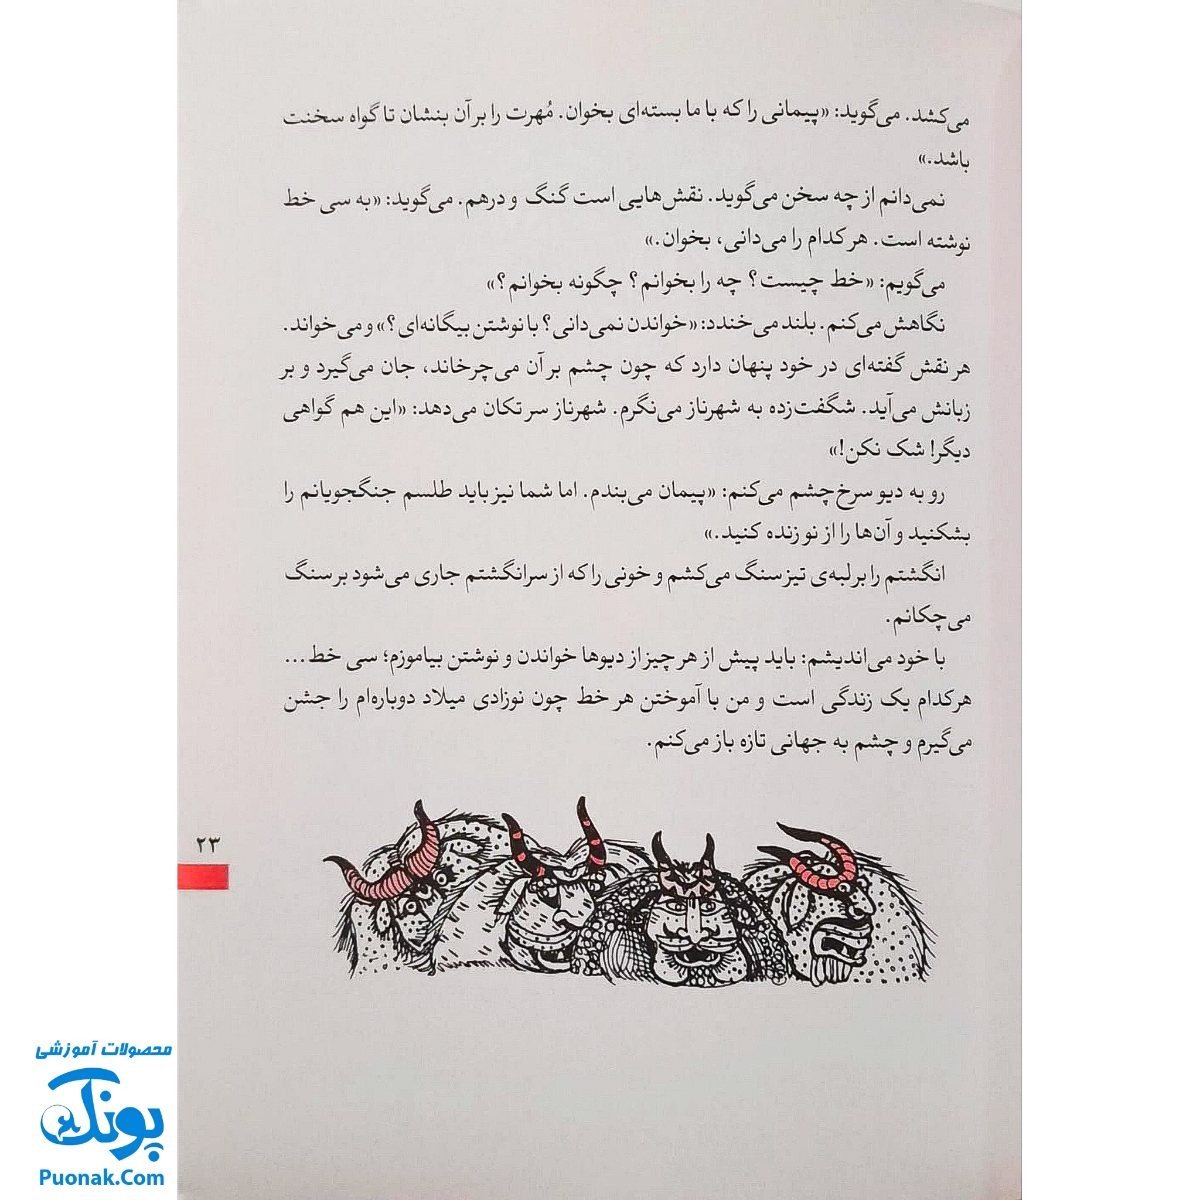 می‌کشد. می‌گوید: «پیمانی را که با ما بسته‌ای بخوان. مُهرت را بر آن بنشان تا گواه سخنت
باشد.»
نمی‌دانم از چه سخن می‌گوید. نقش‌هایی است گنگ و درهم. می‌گوید: «به سی خط
نوشته است. هر کدام را می‌دانی، بخوان.»
می‌گویم: «خط چیست؟ چه را بخوانم؟ چگونه بخوانم؟»
نگاهش می‌کنم. بلند می‌خندد: «خواندن نمی‌دانی؟ با نوشتن بیگانه‌ای؟» و می‌خواند.
هر نقش گفته‌ای در خود پنهان دارد که چون چشم بر آن می‌چرخاند، جان می‌گیرد و بر
زبانش می‌آید. شگفت‌زده به شهرناز می‌نگرم. شهرناز سر تکان می‌دهد: «این هم گواهی
دیگر! شک نکن!»
رو به دیو سرخ‌چشم می‌کنم: «پیمان می‌بندم. اما شما نیز باید طلسم جنگجویانم را
بشکنید و آن‌ها را از نو زنده کنید.»
انگشتم را بر لبه‌ی تیز سنگ می‌کشم و خونی را که از سرانگشتم جاری می‌شود بر سنگ
می‌چکانم.
با خود می‌اندیشم: باید پیش از هر چیز از دیوها خواندن و نوشتن بیاموزم؛ سی خط...
هرکدام یک زندگی است و من با آموختن هر خط چون نوزادی میلاد دوباره‌ام را جشن
می‌گیرم و چشم به جهانی تازه باز می‌کنم.
۲۳
محصولات آموزشی
پونک
Puonak.Com